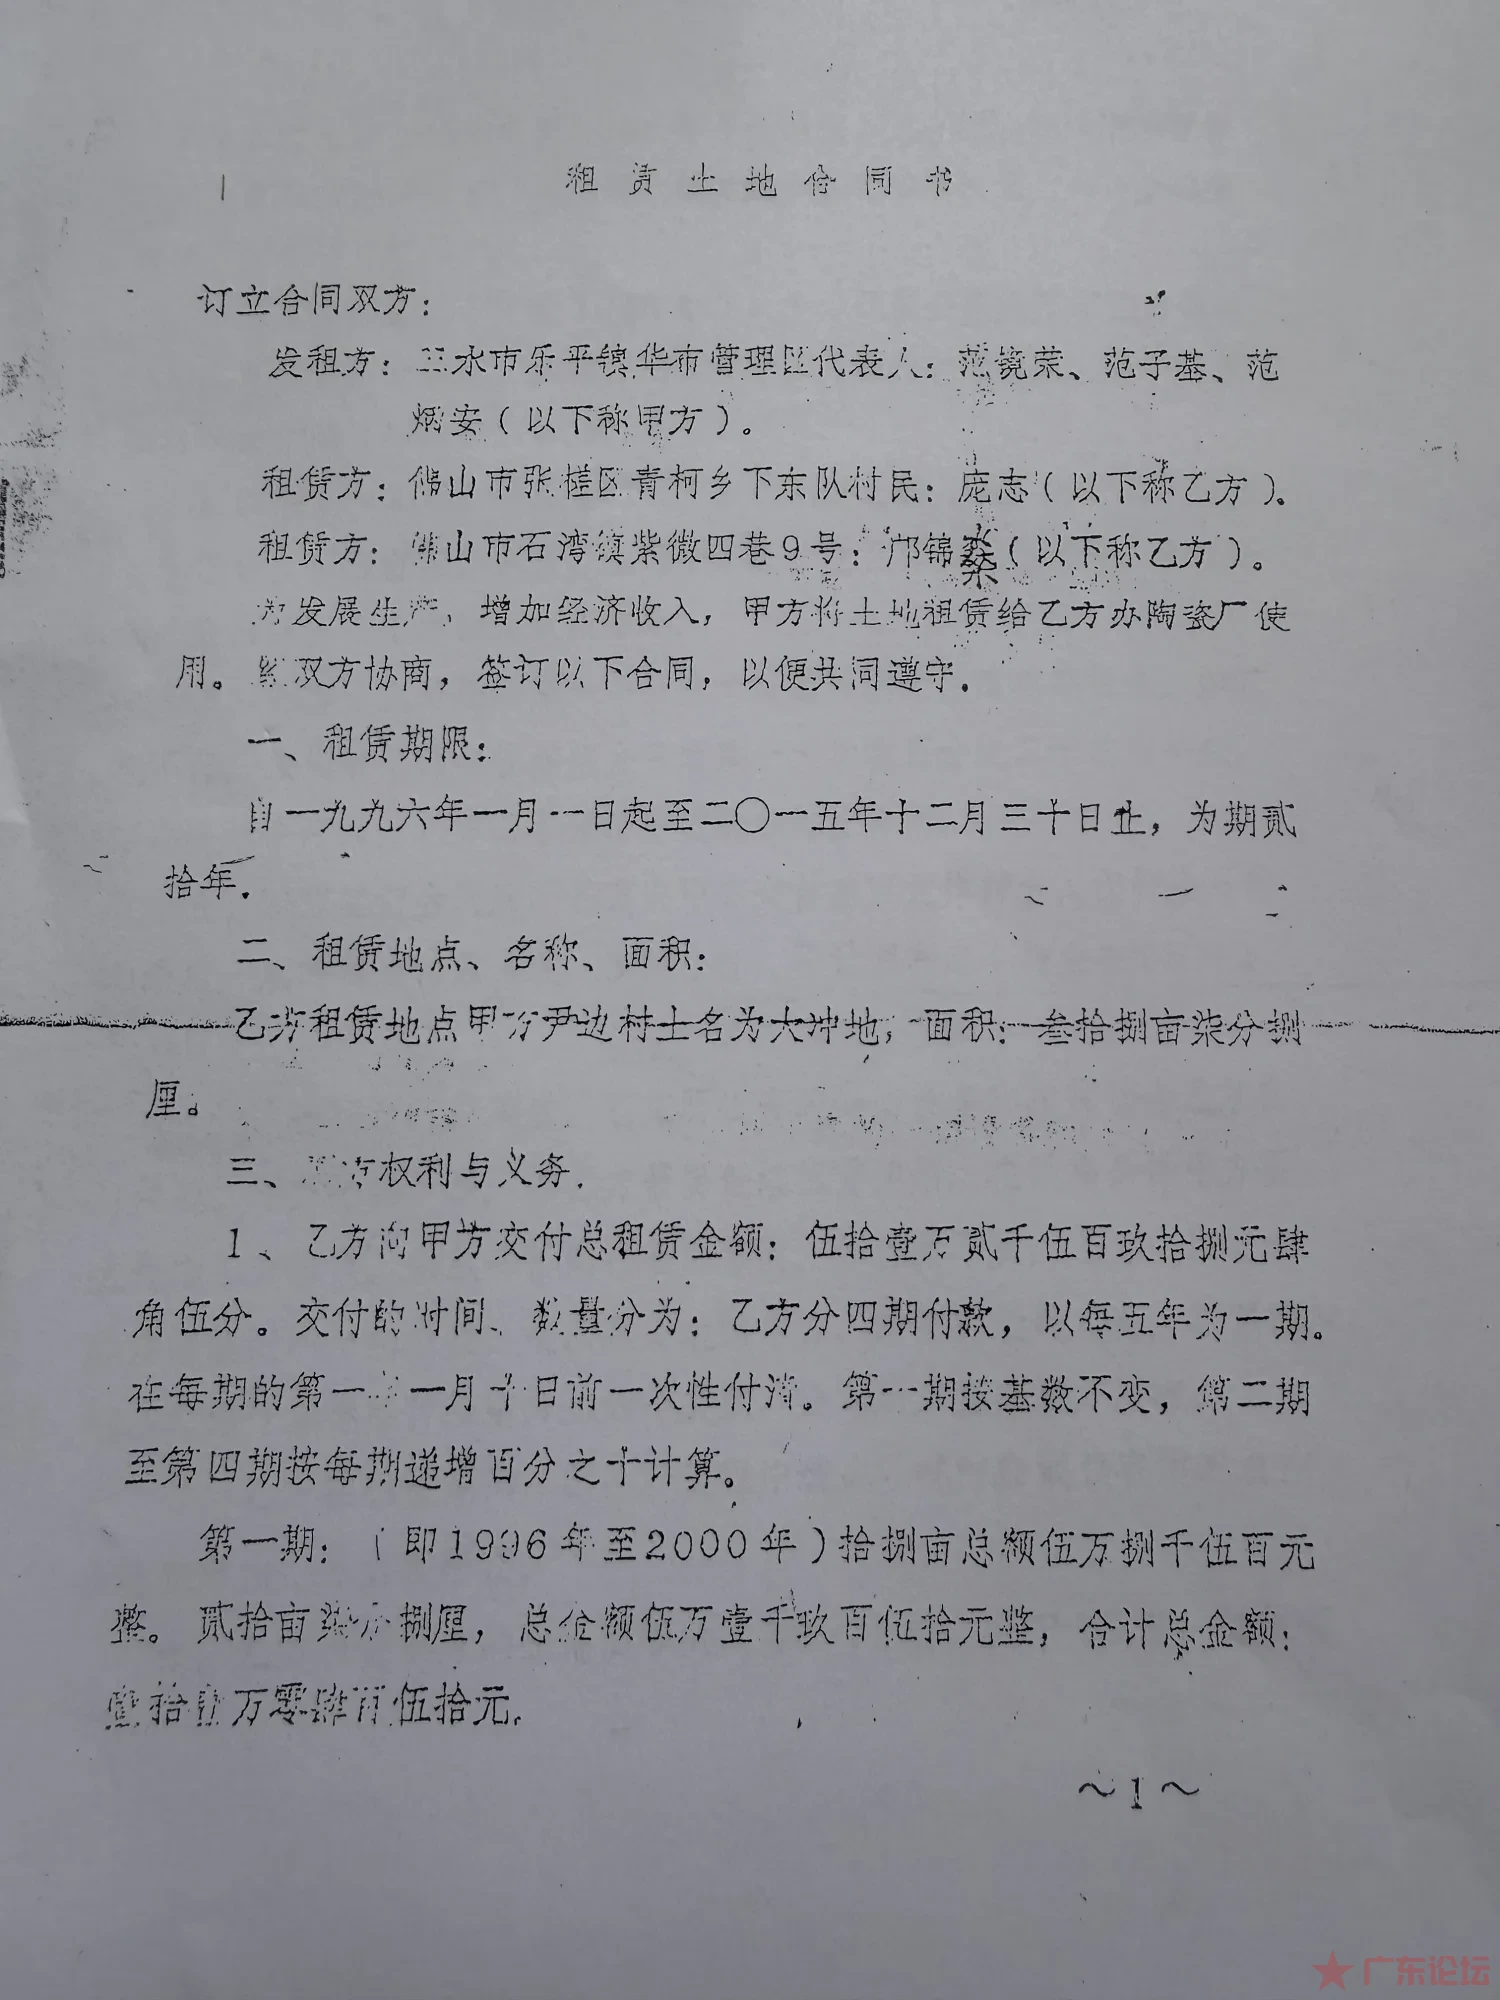 租赁土地合同书
订立合同双方：
发租方：三水市乐平镇华布管理区代表人：范镜荣、范子基、范
炳安（以下称甲方）。
租赁方：佛山市张槎区青柯乡下东队村民：庞志（以下称乙方）。
租赁方：佛山市石湾镇紫薇四巷9号：邝锦燊（以下称乙方）。
为发展生产，增加经济收入，甲方将土地租赁给乙方办陶瓷厂使
用。经双方协商，签订以下合同，以便共同遵守.
一、租赁期限：
自一九九六年一月一日起至二〇一五年十二月三十日止，为期贰
拾年.
二、租赁地点、名称、面积：
乙方租赁地点甲方尹边村土名为大冲地，面积：叁拾捌亩柒分捌
厘。
三、方权利与义务.
1、乙方向甲方交付总租赁金额：伍拾壹万贰千伍百玖拾捌元肆
角伍分。交付的时间、数量分为：乙方分四期付款，以每五年为一期。
在每期的第一年一月十日前一次性付清。第一期按基数不变，第二期
至第四期按每期递增百分之十计算。
第一期：（即1996年至2000年）拾捌亩总额伍万捌千伍百元
整。贰拾亩柒分捌厘，总金额伍万壹千玖百伍拾元整，合计总金额：
壹拾壹万零肆百伍拾元.
～1～
广东论坛